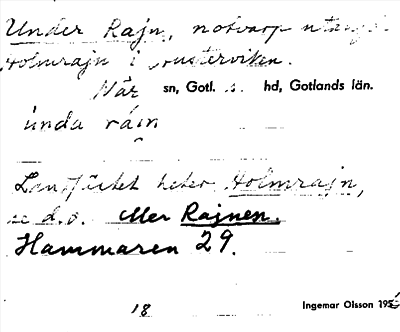 Under Rajn, notvarp utanför
Holmrajn i Austerviken.
När sn, Gotl. s. hd, Gotlands län.
únda ráin
Landfästet heter Holmrajn,
se d.o. eller Rajnen.
Hammaren 29.
18 Ingemar Olsson 195